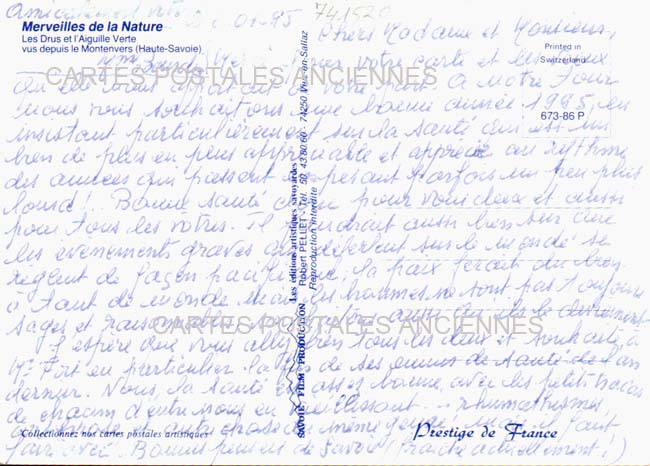 Amicalement
01-95
74.1520
Merveilles de la Nature
Les Drus et l'Aiguille Verte
vus depuis le Montenvers (Haute-Savoie)
Chers Madame et Monsieur,
Printed in
Switzerland
673-86 P
votre carte et les vœux
CARTES POSTALES ANCIENNES
A notre tour
nous vous souhaitons une bonne année 1995, en
insistant particulièrement sur la santé qui est un
bien de plus en plus appréciable et apprécié au rythme
des années qui passent et pesant parfois un peu plus
lourd! Bonne santé pour vous deux et aussi
pour tous les vôtres. Il faudrait aussi bien sûr que
les événements graves qui déferlent sur le monde se
règlent de façon pacifique, la paix ferait du bien
à tant de monde mais les hommes ne sont pas toujours
sages et
CARTES POSTALES ANCIENNES
J'espère que vous allez bien tous les deux et souhaite à
Mr Fort en particulier la de ses ennuis de santé de l'an
dernier. Nous, la santé est assez bonne, avec les petits tracas
de chacun d'entre nous en vieillissant rhumatismes
Collectionnez nos cartes postales artistiques
Prestige de France
faire avec. Bonnes pensées de Savoie (fraîche actuellement!)
SAVOIE FILM PRODUCTION
Les éditions artistiques savoyardes
Robert PELLET - Tél. 50.43.80.60 - 74250 Viuz-en-Sallaz
Reproduction interdite